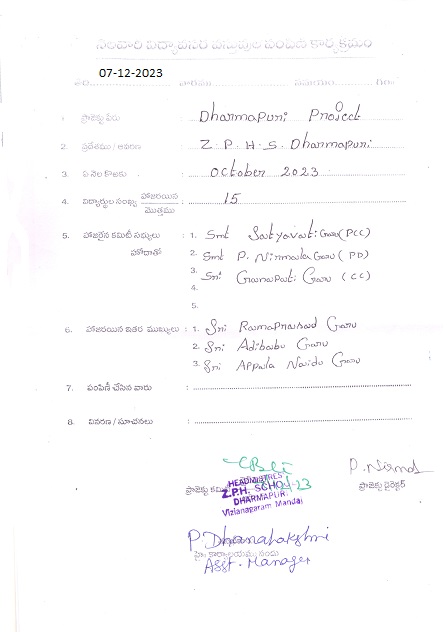 సలవారి విద్యావసర వస్తువుల పంపిణీ కార్యక్రమం
07-12-2023
వారము సమయం గం॥
1. ప్రాజెక్టు పేరు : Dharmapuri Project
2. ప్రదేశము / ఆవరణ : Z.P.H.S. Dharmapuri
3. ఏ నెల కొఱకు : October 2023
4. విద్యార్థుల సంఖ్య హాజరయిన : 15
మొత్తము
5. హాజరైన కమిటీ సభ్యులు : 1. Smt Satyavati Garu (PCC)
హోదాతో 2. Smt P. Nirmala Garu (PD)
3. Sri Ganapati Garu (CC)
4.
5.
6. హాజరయిన ఇతర ముఖ్యులు : 1. Sri Ramaprasad Garu
2. Sri Adibabu Garu
3. Sri Appala Naidu Garu
7. పంపిణీ చేసిన వారు :
8. వివరణ / సూచనలు :
ప్రాజెక్టు P. Nirmal
HEADMISTRESS ప్రాజెక్టు డైరెక్టర్
Z.P.H. SCHOOL
DHARMAPURI
Vizianagaram Mandal
P. Dhanalakshmi
హై కార్యాలయము నందు
Asst. Manager